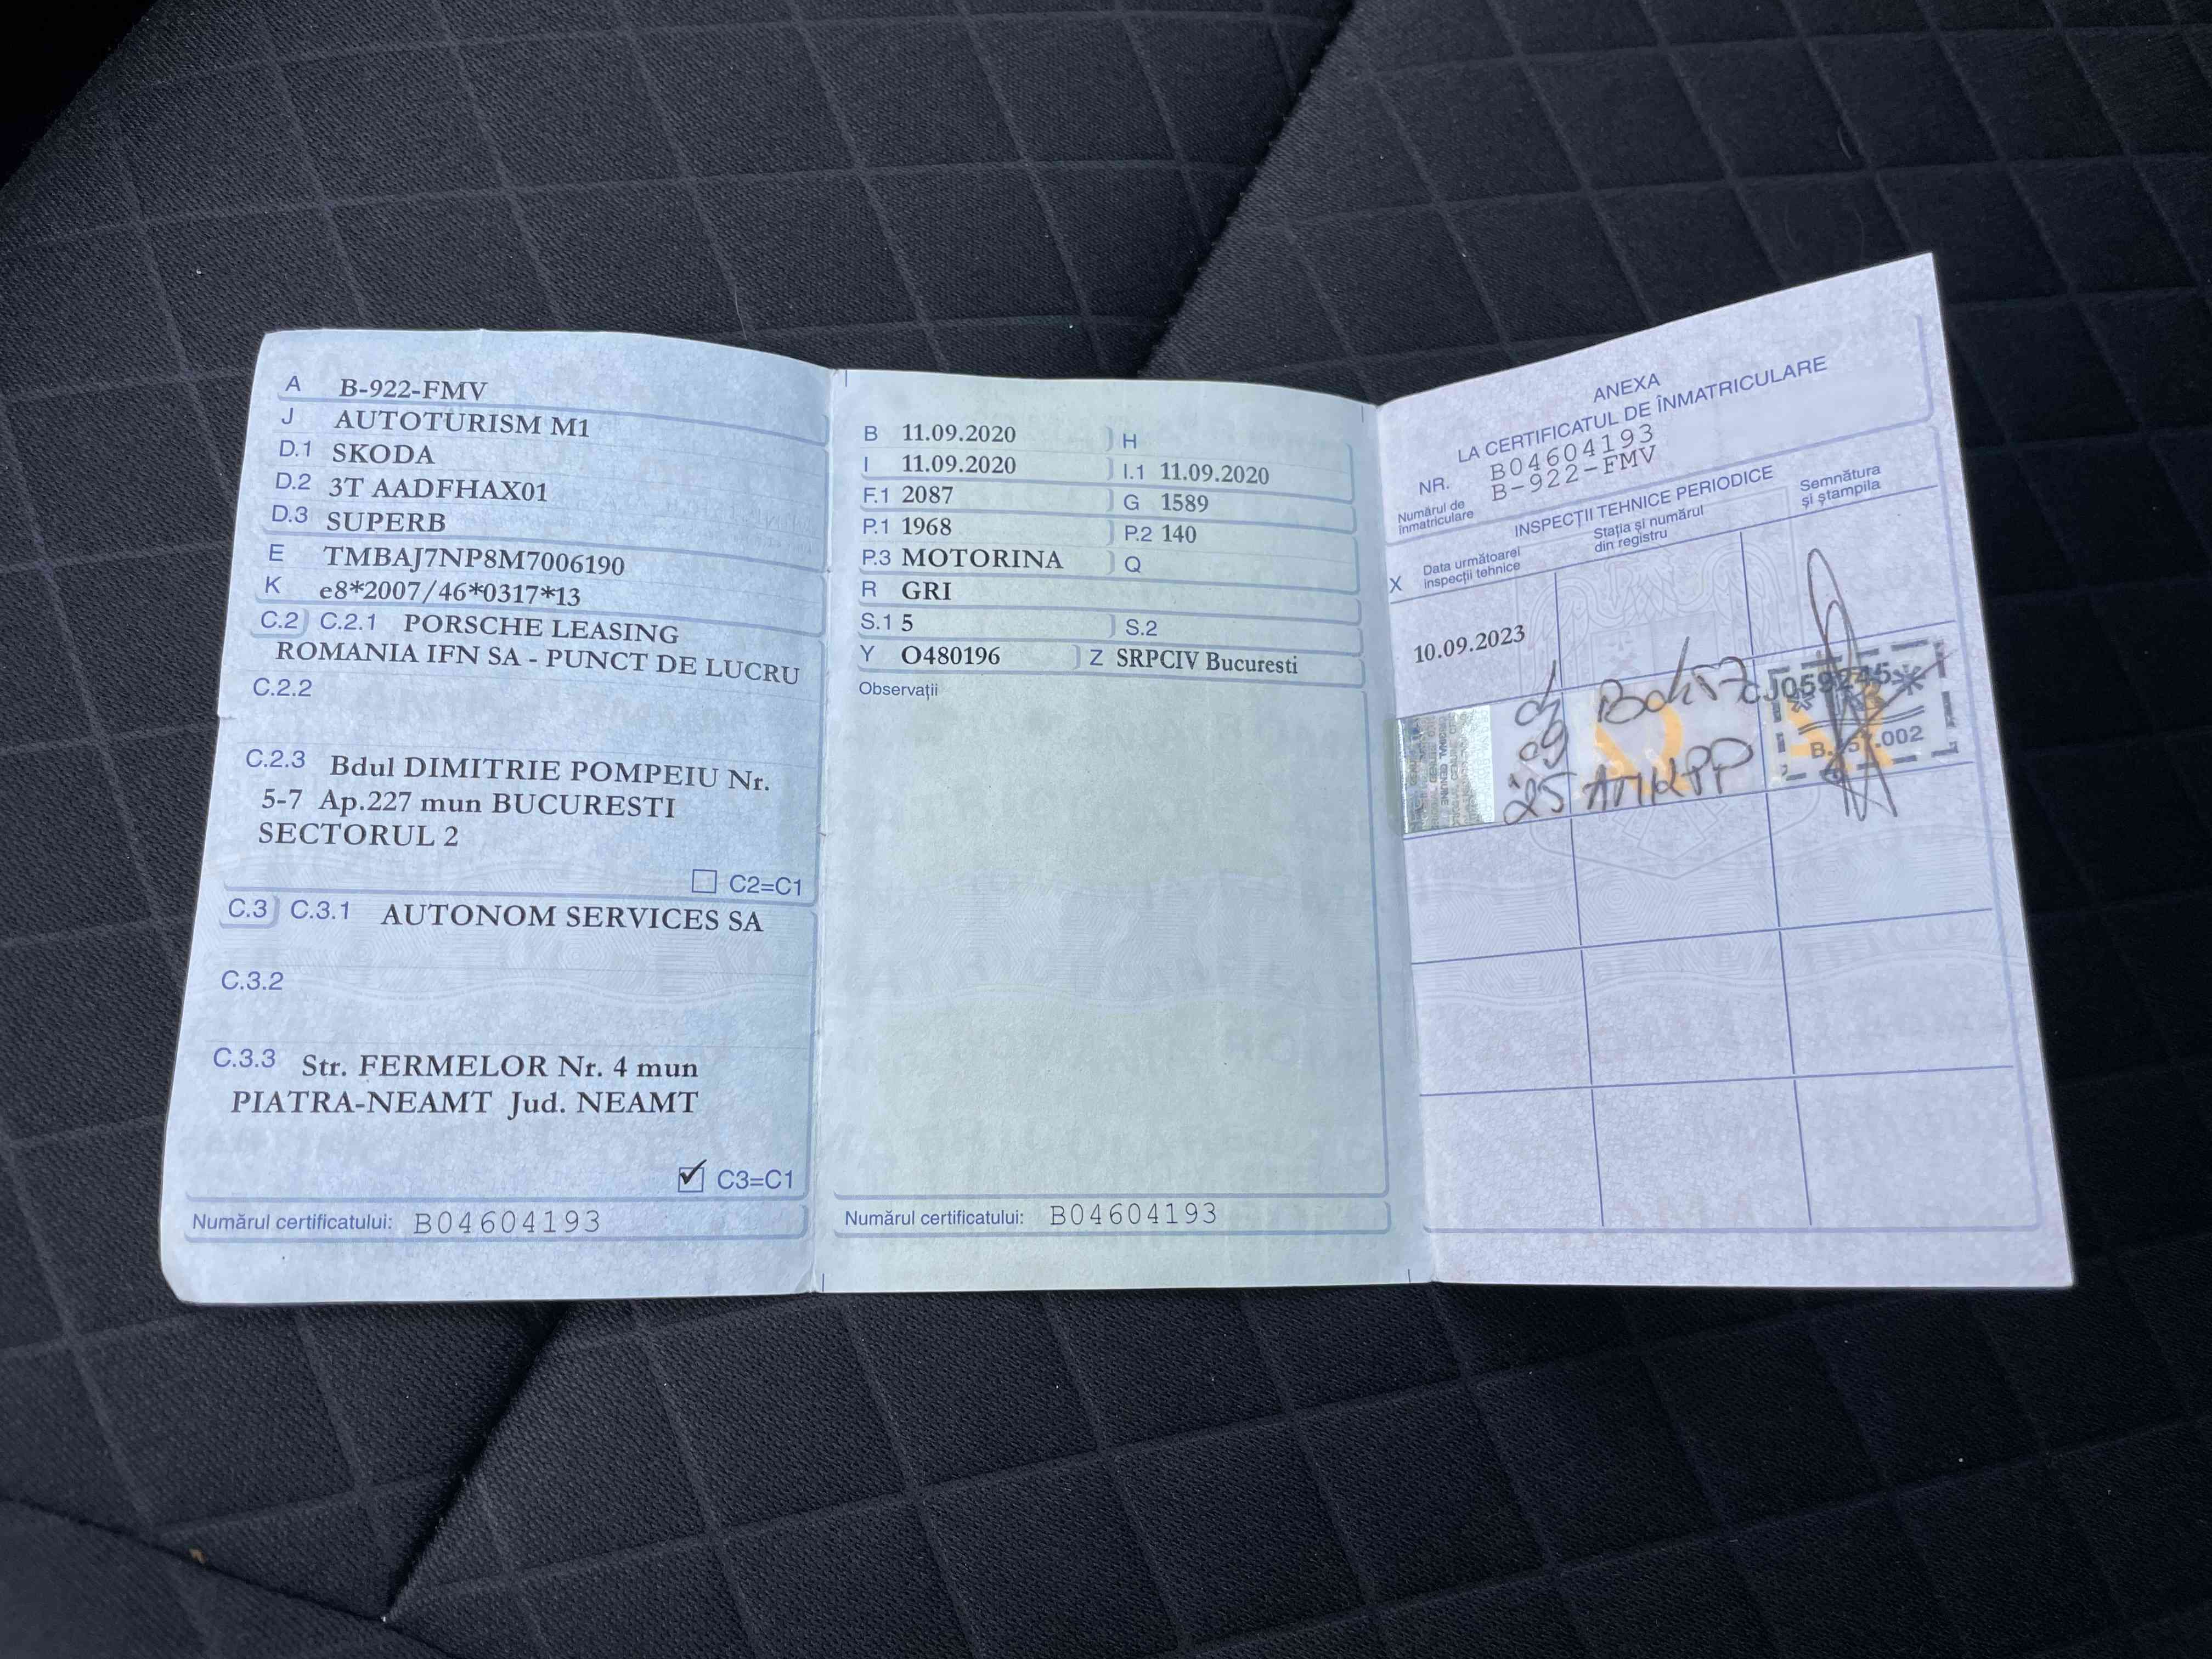 A B-922-FMV
J AUTOTURISM M1
D.1 SKODA
D.2 3T AADFHAX01
D.3 SUPERB
E TMBAJ7NP8M7006190
K e8*2007/46*0317*13
C.2 C.2.1 PORSCHE LEASING
ROMANIA IFN SA - PUNCT DE LUCRU
C.2.2
C.2.3 Bdul DIMITRIE POMPEIU Nr.
5-7 Ap.227 mun BUCURESTI
SECTORUL 2
C2=C1
C.3 C.3.1 AUTONOM SERVICES SA
C.3.2
C.3.3 Str. FERMELOR Nr. 4 mun
PIATRA-NEAMT Jud. NEAMT
C3=C1
Numărul certificatului: B04604193
B 11.09.2020 H
I 11.09.2020 I.1 11.09.2020
F.1 2087 G 1589
P.1 1968 P.2 140
P.3 MOTORINA Q
R GRI
S.1 5 S.2
Y O480196 Z SRPCIV Bucuresti
Observații
Numărul certificatului: B04604193
ANEXA
LA CERTIFICATUL DE ÎNMATRICULARE
NR. B04604193
Numărul de înmatriculare B-922-FMV
INSPECȚII TEHNICE PERIODICE
X Data următoarei inspecții tehnice
Stația și numărul din registru
Semnătura și ștampila
10.09.2023
09
25